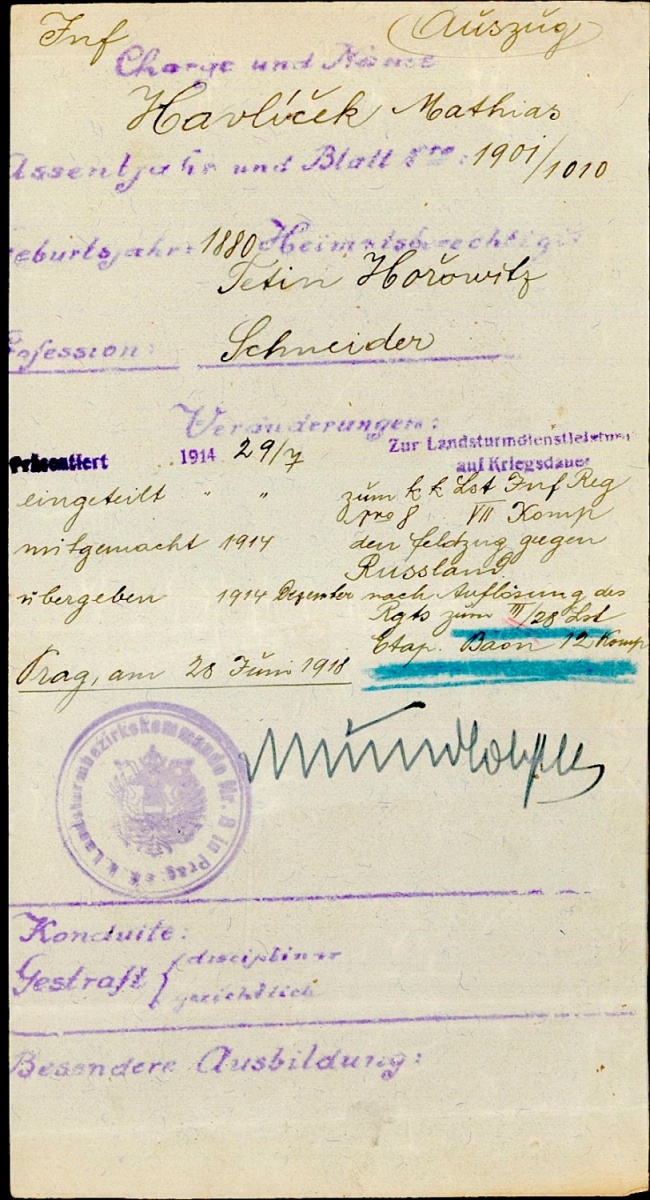 Inf Auszug
Charge und Name
Havlíček Mathias
Assentjahr und Blatt Nro: 1901/1010
Geburtsjahr: 1880 Heimatsberechtigt
Tetin Hořowitz
Profession: Schneider
Veränderungen:
Präsentiert 1914 29/7 Zur Landsturmdienstleistung
auf Kriegsdauer
eingeteilt " " zum k k Lst Inf Reg
No 8 VII Komp
mitgemacht 1914 den feldzug gegen
Russland
übergeben 1914 Dezember nach Auflösung des
Rgts zum III/28 Lst
Etap. Baon 12 Komp
Prag, am 28 Juni 1918
K. k. Landsturmbezirkskommando Nr. 8 in Prag
Konduite:
Gestraft { disciplinär
gerichtlich
Besondere Ausbildung: